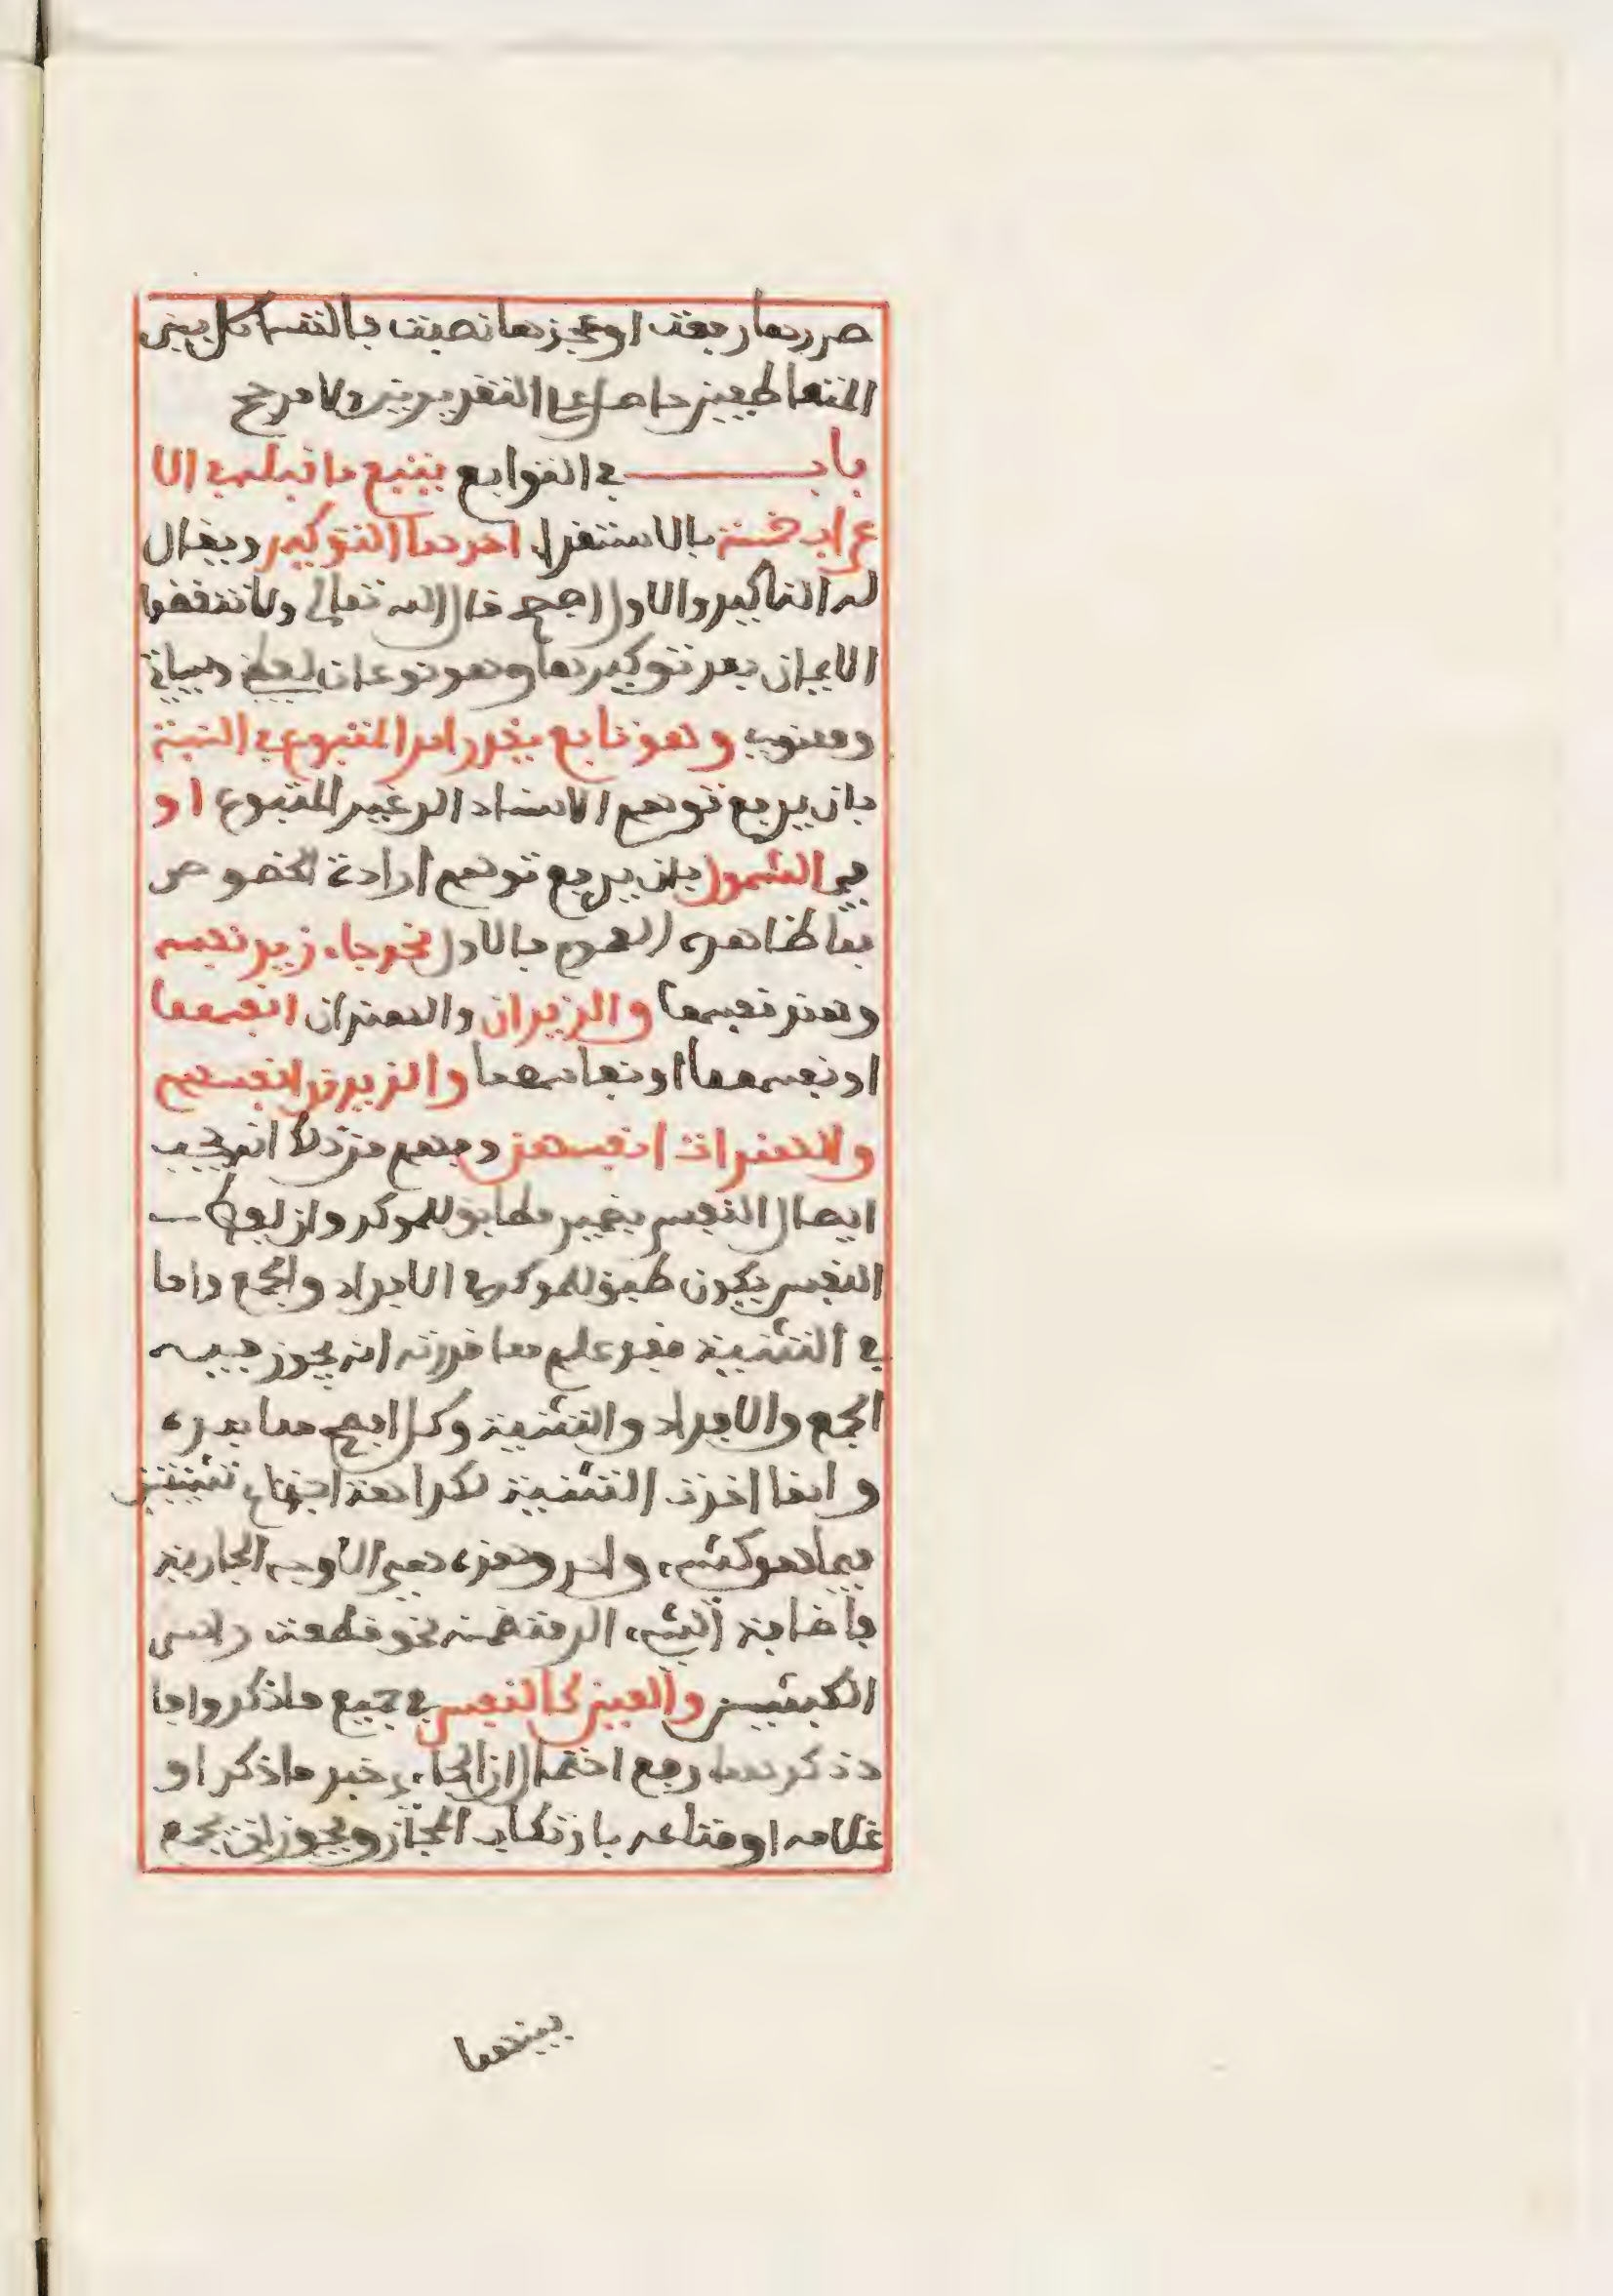 صدرها رفعت او عجزها نصبت فالتشاكل بين
المتعاطفين حاصل على التقديرين ولا مرجح
باب في التوابع يتبع ما قبله في الا
عراب خمسة بالاستقراء احدها التوكيد ويقال
له التاكيد والاول افصح قال الله تعالى ولا تنقضوا
الايمان بعد توكيدها وهو نوعان لفظي وسياتي
ومعنوي وهو تابع يقرر امر المتبوع في النسبة
بان يرفع توهم الاسناد الى غير المتبوع او
في الشمول بان يرفع توهم ارادة الخصوص
بما ظاهره العموم فالاول نحو جاء زيد نفسه
وهند نفسها والزيدان والهندان انفسهما
او نفسهما او نفساهما والزيدون انفسهم
والهندات انفسهن وفهم من ذلك انه يجب
اتصال النفس بضمير مطابق للموكد وان لفظ
النفس يكون طبق الموكد في الافراد والجمع واما
في التثنية فقد علم مما قررته انه يجوز فيه
الجمع والافراد والتثنية وكل افصح مما بعده
وانما اخرت التثنية لكراهة اجتماع تثنيتين
فيما هو كشيء واحد وهذه هي الأوجه الجارية
باضافة الشيء الى متضمنه نحو قطعت راسي
الكبشين والعين كالنفس في جميع ما ذكر واما
ذ ذكرهما رفع احتمال ان الجاءي خبر ما ذكر او
غلامه او متاعه بارتكاب المجاز ويجوز ان يجمع
بينهما